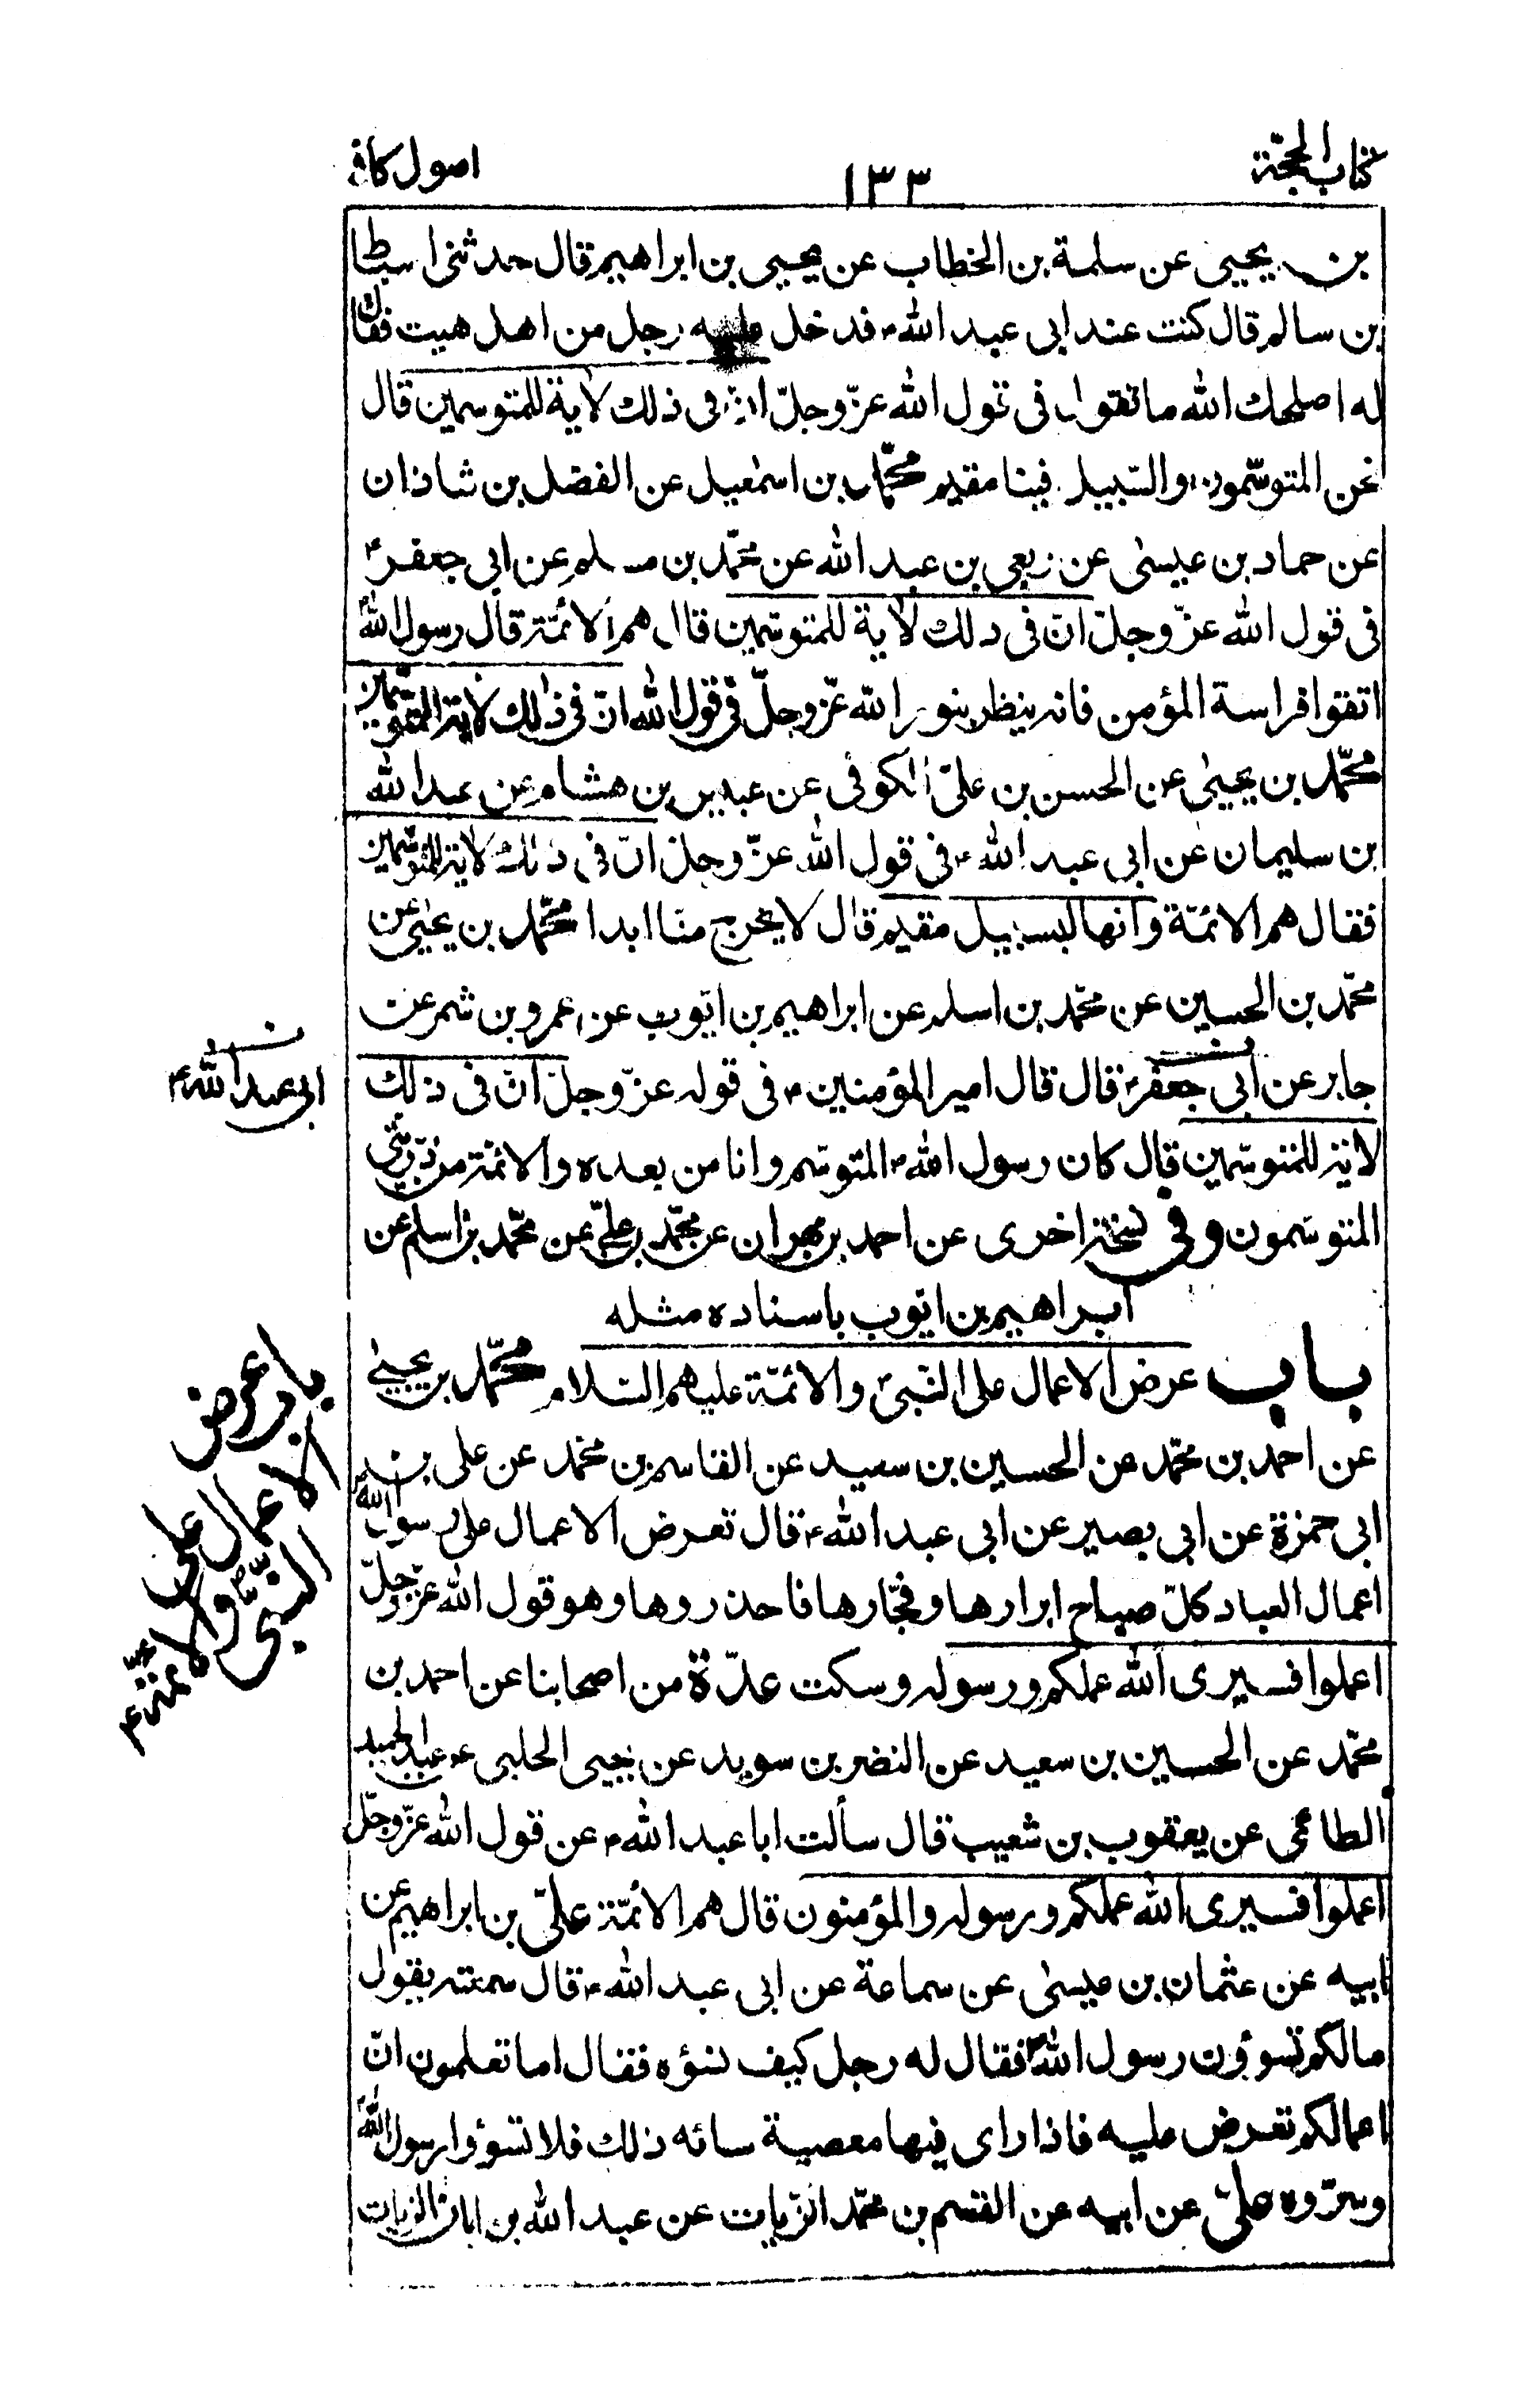 كتاب الحجة
١٣٣
اصول كافى
بن يحيى عن سلمة بن الخطاب عن يحيى بن ابراهيم قال حدثنى اسباط
بن سالم قال كنت عند ابى عبد الله ع فدخل عليه رجل من اهل هيت فقال
له اصلحك الله ما تقول فى قول الله عزّ وجلّ انّ فى ذلك لاية للمتوسمين قال
نحن المتوسّمون والسّبيل فينا مقيم محمّد بن اسمعيل عن الفضل بن شاذان
عن حماد بن عيسى عن ربعى بن عبد الله عن محمّد بن مسلم عن ابى جعفر ع
فى قول الله عزّ وجلّ انّ فى ذلك لاية للمتوسّمين قال هم الائمّة قال رسول الله ص
اتقوا فراسة المؤمن فانه ينظر بنور الله عزّ وجلّ فى قول الله انّ فى ذلك لاية للمتوسّمين
محمّد بن يحيى عن الحسن بن علىّ الكوفى عن عبيس بن هشام عن عبد الله
بن سليمان عن ابى عبد الله ع فى قول الله عزّ وجلّ انّ فى ذلك لاية للمتوسّمين
فقال هم الائمّة وانها لبسبيل مقيم قال لا يخرج منّا ابدا محمّد بن يحيى عن
محمّد بن الحسين عن محمّد بن اسلم عن ابراهيم بن ايّوب عن عمرو بن شمر عن
جابر عن ابى جعفر ع قال قال امير المؤمنين ع فى قوله عزّ وجلّ انّ فى ذلك
ابى عبد الله ع
لاية للمتوسّمين قال كان رسول الله ص المتوسّم وانا من بعده والائمّة من ذرّيتى
المتوسّمون وفى نسخة اخرى عن احمد بن مهران عن محمّد بن علىّ عن محمّد بن اسلم عن
ابراهيم بن ايّوب باسناده مثله
باب عرض الاعمال على النّبىّ ص والائمّة عليهم السّلام محمّد بن يحيى
باب عرض
الاعمال على
النبىّ ص والائمّة ع
عن احمد بن محمّد عن الحسين بن سعيد عن القاسم بن محمّد عن على بن
ابى حمزة عن ابى بصير عن ابى عبد الله ع قال تعرض الاعمال على رسول الله ص
اعمال العباد كلّ صباح ابرارها وفجّارها فاحذروها وهو قول الله عزّ وجلّ
اعملوا فسيرى الله عملكم ورسوله وسكت عدّة من اصحابنا عن احمد بن
محمّد عن الحسين بن سعيد عن النضر بن سويد عن يحيى الحلبى عن عبد الحميد
الطائى عن يعقوب بن شعيب قال سألت ابا عبد الله ع عن قول الله عزّ وجلّ
اعملوا فسيرى الله عملكم ورسوله والمؤمنون قال هم الائمّة علىّ بن ابراهيم عن
ابيه عن عثمان بن عيسى عن سماعة عن ابى عبد الله ع قال سمعته يقول
مالكم تسوؤن رسول الله ص فقال له رجل كيف نسؤه فقال اما تعلمون انّ
اعمالكم تعرض عليه فاذا راى فيها معصية سائه ذلك فلا تسؤوا رسول الله ص
وسرّوه علىّ عن ابيه عن القسم بن محمّد الزّيات عن عبد الله بن ابان الزيات